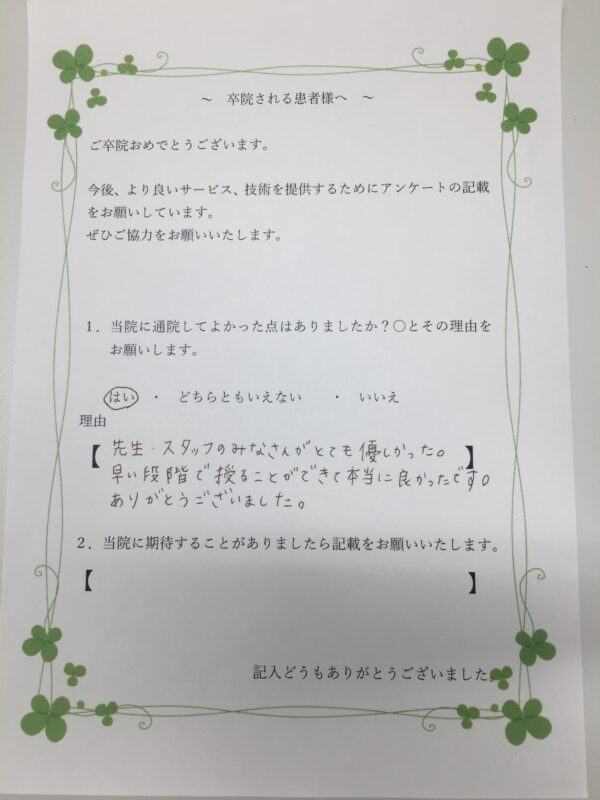 ～　卒院される患者様へ　～
ご卒院おめでとうございます。
今後、より良いサービス、技術を提供するためにアンケートの記載
をお願いしています。
ぜひご協力をお願いいたします。
1．当院に通院してよかった点はありましたか？〇とその理由を
お願いします。
はい　・　どちらともいえない　　・　いいえ
理由
【 先生・スタッフのみなさんがとても優しかった。 】
早い段階で授ることができて本当に良かったです。
ありがとうございました。
2．当院に期待することがありましたら記載をお願いいたします。
【　　】
記入どうもありがとうございました。